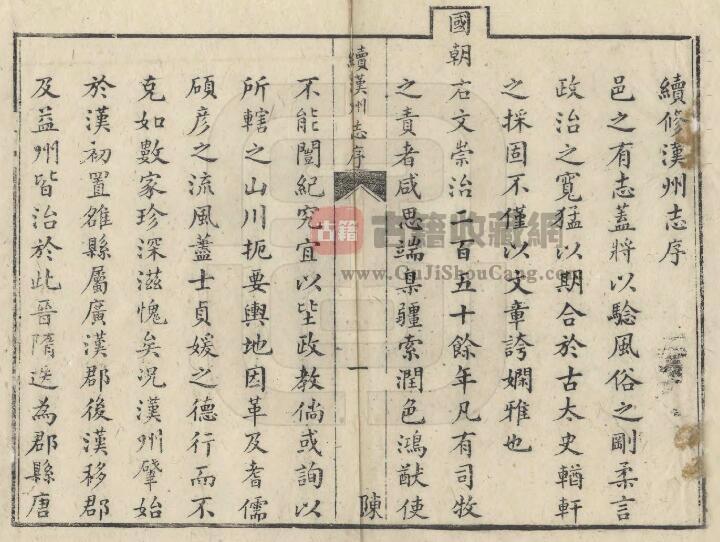 續修漢州志序
邑之有志蓋將以驗風俗之剛柔言
政治之寬猛以期合於古太史輶軒
之採固不僅以文章誇嫻雅也
國朝右文崇治二百五十餘年凡有司牧
之責者咸思端臬疆索潤色鴻猷使
續漢州志序
一
陳
不能闓紀究宜以埊政教倘或詢以
所轄之山川扼要輿地因革及耆儒
碩彦之流風藎士貞媛之德行而不
克如數家珍深滋愧矣況漢州肇始
於漢初置雒縣屬廣漢郡後漢移郡
及益州皆治於此晉隋迭為郡縣唐
古籍
古籍收藏網
www.GuJiShouCang.com